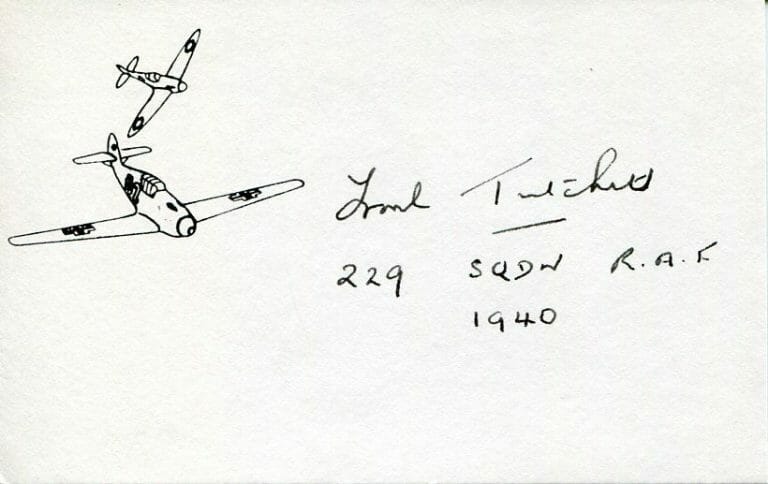 Frank Twitchett
229 SQDN R.A.F
1940